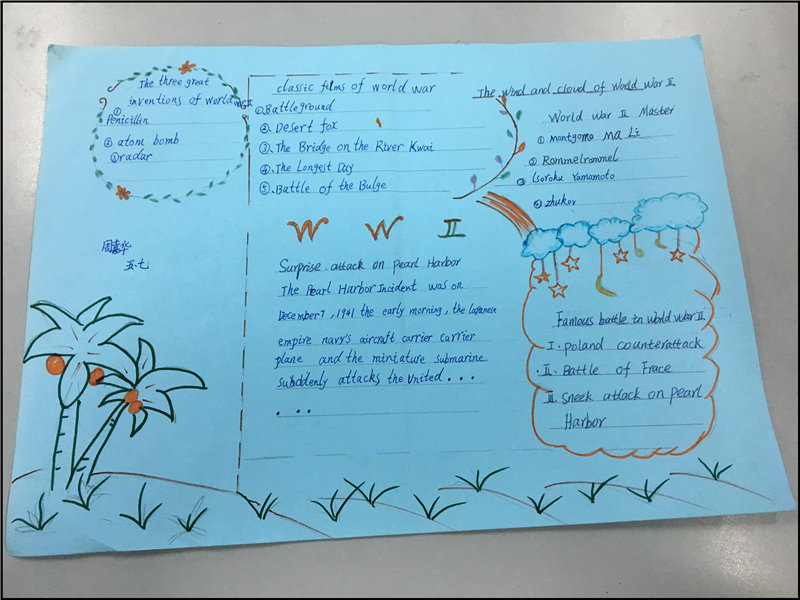 The three great
inventions of world war II
① Penicillin
② atom bomb
③ radar
周嘉华
五.七
classic films of world war
①. Battleground
②. Desert fox
③. The Bridge on the River Kwai
④. The Longest Day
⑤. Battle of the Bulge
W W II
Surprise attack on pearl Harbor
The Pearl Harbor Incident was on
December 7, 1941 the early morning, the Japanese
empire navy's aircraft carrier carrier
plane and the miniature submarine
subddenly attacks the United . . .
. . . .
The wind and cloud of World War II
World War II Master
① montgome Ma Li
② Rommelrommel
③ Isoroku Yamamoto
④ zhukov
Famous battle in world war II
I. poland counterattack
II. Battle of Frace
III. Sneek attack on pearl
Harbor